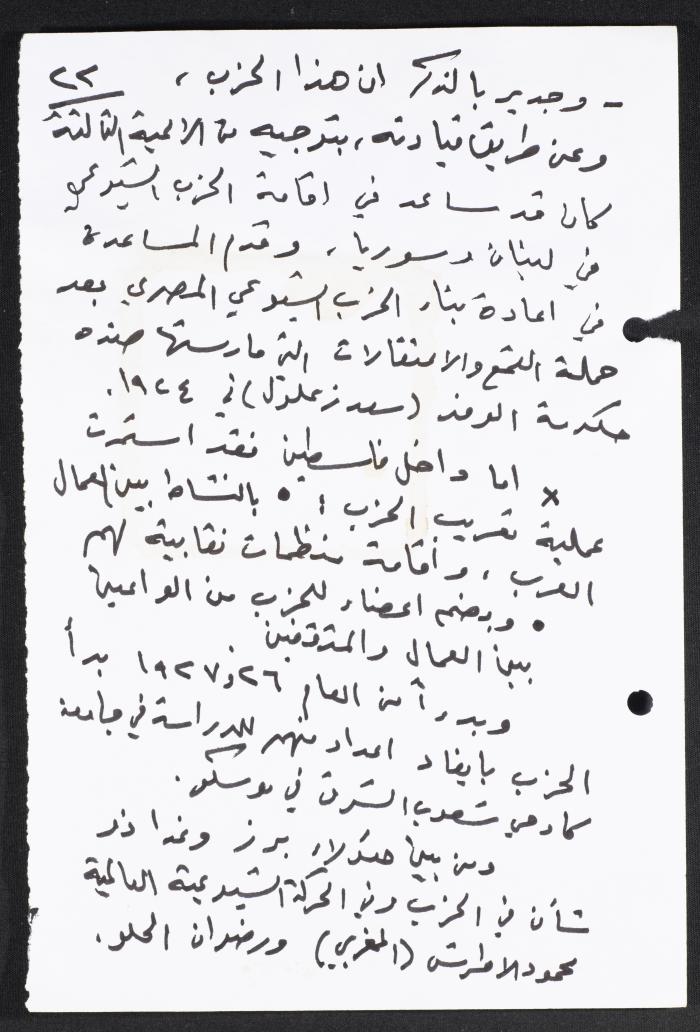 - وجدير بالذكر ان هذا الحزب، ٢٢
وعن طريق قيادته، بتوجيه من الاممية الثالثة
كان قد ساعد في اقامة الحزب الشيوعي
في لبنان وسوريا، وقدم المساعدة
في اعادة بناء الحزب الشيوعي المصري بعد
حملة القمع والاعتقالات التي مارستها ضده
حكومة الوفد (سعد زغلول) في ١٩٢٤.
x اما داخل فلسطين فقد استمرت
عملية تعريب الحزب: • بالنشاط بين العمال
العرب، واقامة منظمات نقابية لهم
• وبضم اعضاء للحزب من الواعين
بين العمال والمثقفين
وبدءاً من العام ٢٦ و١٩٢٧ بدأ
الحزب بايفاد اعداد منهم للدراسة في جامعة
كادحي شعوب الشرق في موسكو.
ومن بين هؤلاء برز وغدا ذو
شأن في الحزب وفي الحركة الشيوعية العالمية
محمود الاطرش (المغربي) ورضوان الحلو.